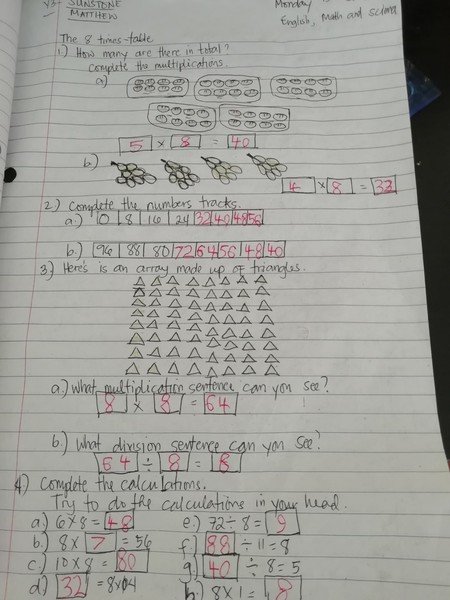 Y3- SUNSTONE
- MATTHEW
Monday
English, Math and Science
The 8 times-table
1.) How many are there in total?
Complete the multiplications.
a)
5 × 8 = 40
b.)
4 × 8 = 32
2.) Complete the numbers tracks.
a.) 0 8 16 24 32 40 48 56
b.) 96 88 80 72 64 56 48 40
3.) Here's is an array made up of triangles.
a.) What multiplication sentence can you see?
8 × 8 = 64
b.) What division sentence can you see?
64 ÷ 8 = 8
4) Complete the calculations.
Try to do the calculations in your head.
a.) 6×8 = 48
e.) 72÷8 = 9
b.) 8× 7 = 56
f.) 88 ÷ 11 = 8
c.) 10×8 = 80
g.) 40 ÷ 8 = 5
d.) 32 = 8×04
h.) 8×1 = 8